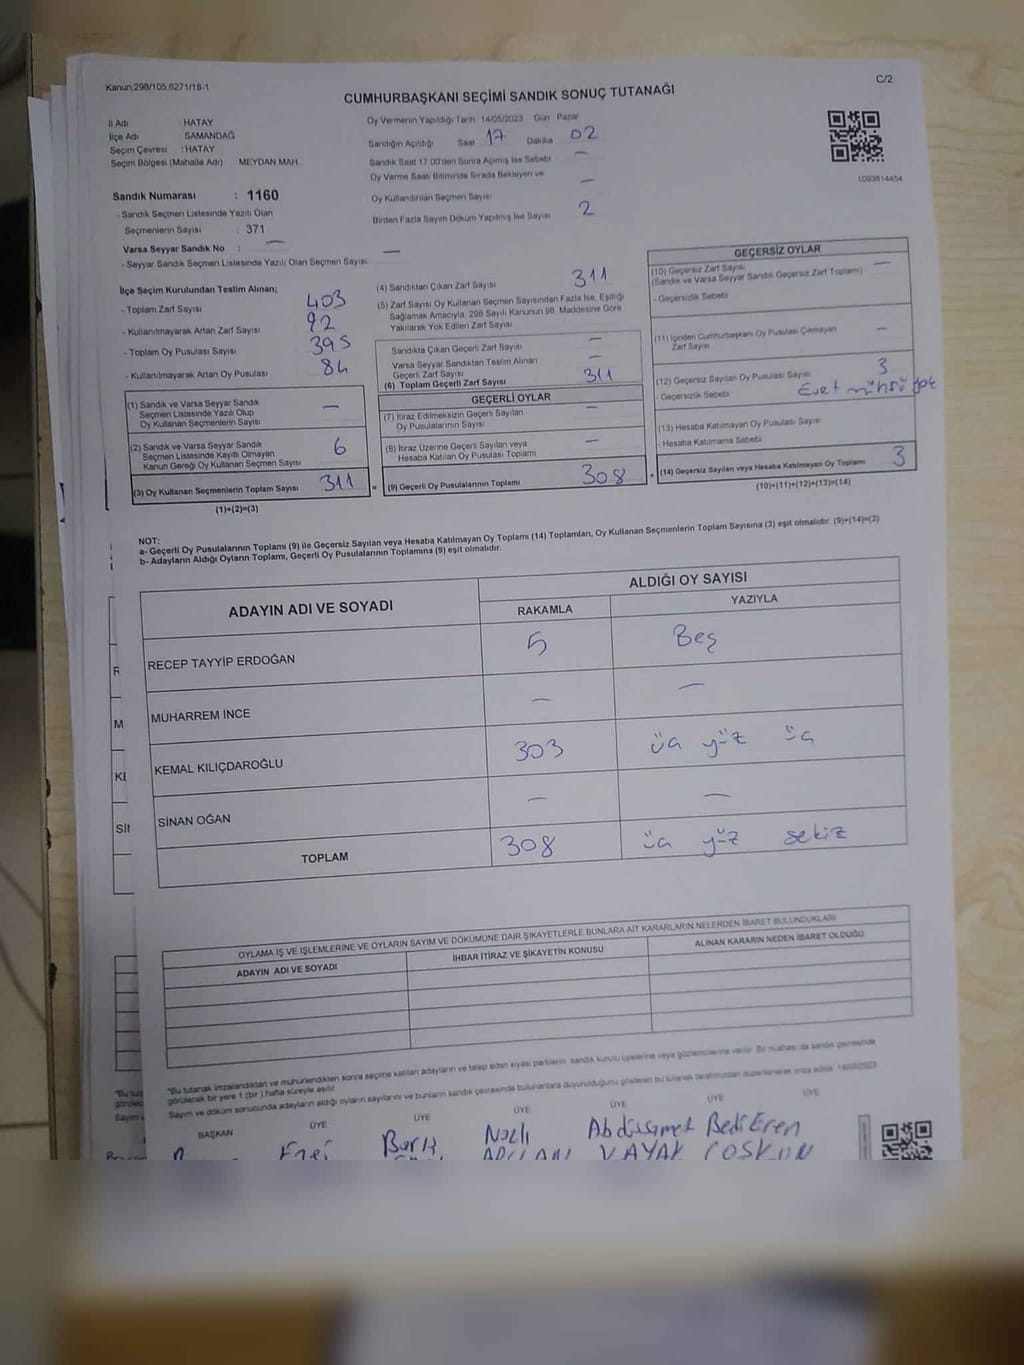 Kanun;298/105,6271/18-1
C/2
CUMHURBAŞKANI SEÇİMİ SANDIK SONUÇ TUTANAĞI
İl Adı HATAY
İlçe Adı SAMANDAĞ
Seçim Çevresi : HATAY
Seçim Bölgesi (Mahalle Adı) MEYDAN MAH.
Sandık Numarası : 1160
- Sandık Seçmen Listesinde Yazılı Olan
Seçmenlerin Sayısı : 371
Varsa Seyyar Sandık No : —
- Seyyar Sandık Seçmen Listesinde Yazılı Olan Seçmen Sayısı —
Oy Vermenin Yapıldığı Tarih 14/05/2023 Gün Pazar
Sandığın Açıldığı Saat 17 Dakika 02
Sandık Saat 17.00'den Sonra Açılmış İse Sebebi —
Oy Verme Saati Bitiminde Sırada Bekleyen ve
Oy Kullandırılan Seçmen Sayısı —
Birden Fazla Sayım Döküm Yapılmış İse Sayısı 2
1093814454
İlçe Seçim Kurulundan Teslim Alınan;
- Toplam Zarf Sayısı 403
- Kullanılmayarak Artan Zarf Sayısı 92
- Toplam Oy Pusulası Sayısı 395
- Kullanılmayarak Artan Oy Pusulası 84
(1) Sandık ve Varsa Seyyar Sandık
Seçmen Listesinde Yazılı Olup
Oy Kullanan Seçmenlerin Sayısı —
(2) Sandık ve Varsa Seyyar Sandık
Seçmen Listesinde Kayıtlı Olmayan
Kanun Gereği Oy Kullanan Seçmen Sayısı 6
(3) Oy Kullanan Seçmenlerin Toplam Sayısı 311
(1)+(2)=(3)
(4) Sandıktan Çıkan Zarf Sayısı 311
(5) Zarf Sayısı Oy Kullanan Seçmen Sayısından Fazla İse, Eşitliği
Sağlamak Amacıyla, 298 Sayılı Kanunun 98. Maddesine Göre
Yakılarak Yok Edilen Zarf Sayısı
Sandıkta Çıkan Geçerli Zarf Sayısı —
Varsa Seyyar Sandıktan Teslim Alınan
Geçerli Zarf Sayısı —
(6) Toplam Geçerli Zarf Sayısı 311
GEÇERLİ OYLAR
(7) İtiraz Edilmeksizin Geçerli Sayılan
Oy Pusulalarının Sayısı —
(8) İtiraz Üzerine Geçerli Sayılan veya
Hesaba Katılan Oy Pusulası Toplamı —
= (9) Geçerli Oy Pusulalarının Toplamı 308
GEÇERSİZ OYLAR
(10) Geçersiz Zarf Sayısı —
(Sandık ve Varsa Seyyar Sandık Geçersiz Zarf Toplamı)
- Geçersizlik Sebebi
(11) İçinden Cumhurbaşkanı Oy Pusulası Çıkmayan
Zarf Sayısı —
(12) Geçersiz Sayılan Oy Pusulası Sayısı 3
- Geçersizlik Sebebi Evet mührü yok
(13) Hesaba Katılmayan Oy Pusulası Sayısı
- Hesaba Katılmama Sebebi
+ (14) Geçersiz Sayılan veya Hesaba Katılmayan Oy Toplamı 3
(10)+(11)+(12)+(13)=(14)
NOT:
a- Geçerli Oy Pusulalarının Toplamı (9) ile Geçersiz Sayılan veya Hesaba Katılmayan Oy Toplamı (14) Toplamları, Oy Kullanan Seçmenlerin Toplam Sayısına (3) eşit olmalıdır. (9)+(14)=(3)
b- Adayların Aldığı Oyların Toplamı, Geçerli Oy Pusulalarının Toplamına (9) eşit olmalıdır.
ADAYIN ADI VE SOYADI
ALDIĞI OY SAYISI
RAKAMLA YAZIYLA
RECEP TAYYİP ERDOĞAN 5 Beş
MUHARREM İNCE — —
KEMAL KILIÇDAROĞLU 303 üç yüz üç
SİNAN OĞAN — —
TOPLAM 308 üç yüz sekiz
OYLAMA İŞ VE İŞLEMLERİNE VE OYLARIN SAYIM VE DÖKÜMÜNE DAİR ŞİKAYETLERLE BUNLARA AİT KARARLARIN NELERDEN İBARET BULUNDUKLARI
ADAYIN ADI VE SOYADI İHBAR İTİRAZ VE ŞİKAYETİN KONUSU ALINAN KARARIN NEDEN İBARET OLDUĞU
"Bu tutanak imzalandıktan ve mühürlendikten sonra seçime katılan adayların ve talep eden siyasi partilerin sandık kurulu üyelerine veya gözlemcilerine verilir. Bir nüshası da sandık çevresinde
görülecek bir yere 1 (bir) hafta süreyle asılır.
Sayım ve döküm sonucunda adayların aldığı oyların sayılarını ve bunların sandık çevresinde bulunanlara duyurulduğunu gösteren bu tutanak tarafımızdan düzenlenerek imza edildi. 14/05/2023
BAŞKAN ÜYE ÜYE ÜYE ÜYE ÜYE ÜYE
Nazlı Abdüssamet Bedi Eren
VAYAK COŞKUN